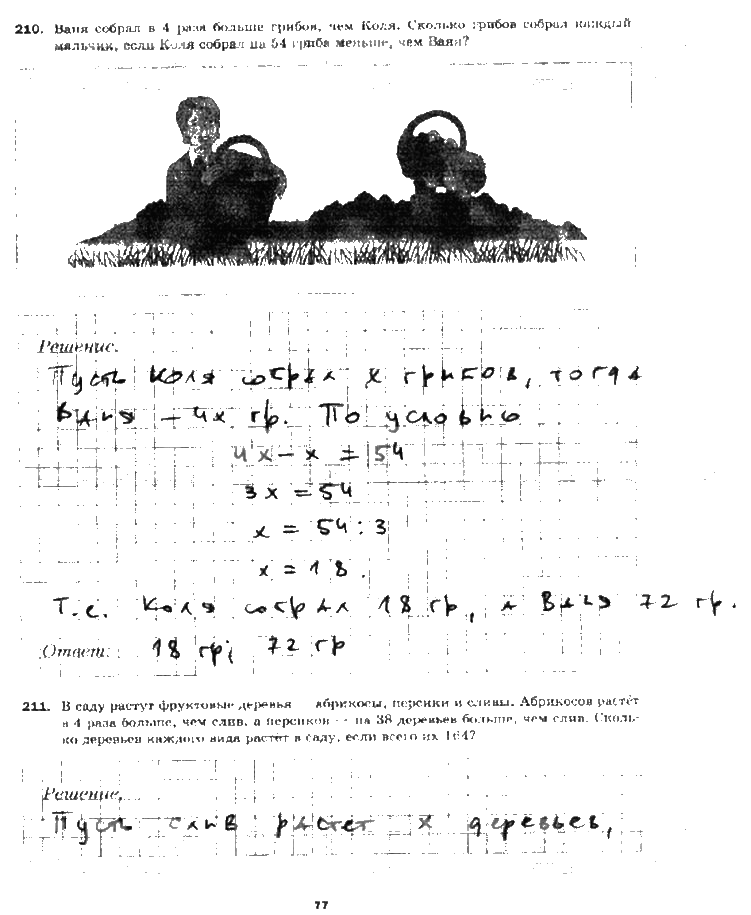 210. Ваня собрал в 4 раза больше грибов, чем Коля. Сколько грибов собрал каждый
мальчик, если Коля собрал на 54 гриба меньше, чем Ваня?
Решение.
Пусть Коля собрал х грибов, тогда
Ваня – 4х гр. По условию
4х – х = 54
3х = 54
х = 54 : 3
х = 18.
Т.е. Коля собрал 18 гр, а Ваня 72 гр.
Ответ: 18 гр; 72 гр
211. В саду растут фруктовые деревья абрикосы, персики и сливы. Абрикосов растёт
в 4 раза больше, чем слив, а персиков — на 38 деревьев больше, чем слив. Сколь-
ко деревьев каждого вида растёт в саду, если всего их 164?
Решение.
Пусть слив растет х деревьев,
77